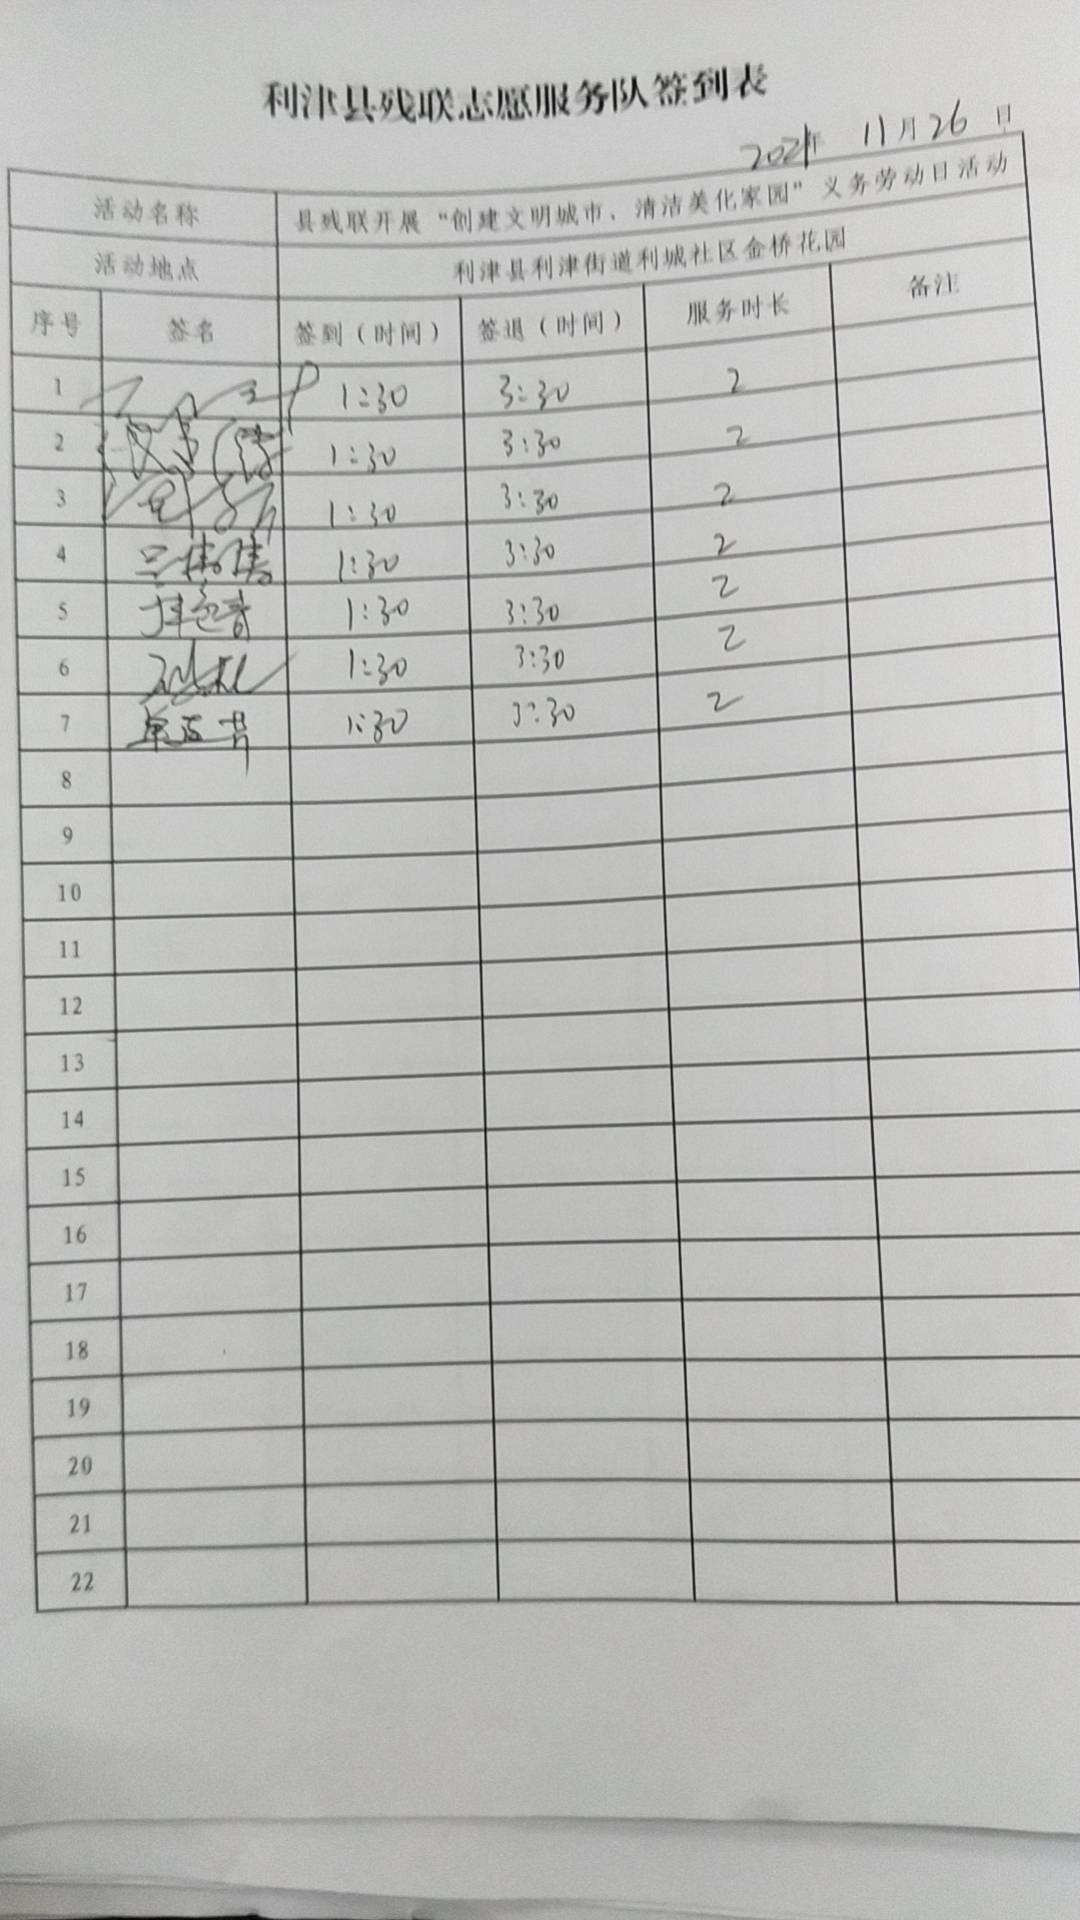 利津县残联志愿服务队签到表
2021年 11月26日
活动名称 县残联开展“创建文明城市、清洁美化家园”义务劳动日活动
活动地点 利津县利津街道利城社区金桥花园
序号 签名 签到（时间） 签退（时间） 服务时长 备注
1 1:30 3:30 2
2 1:30 3:30 2
3 1:30 3:30 2
4 1:30 3:30 2
5 1:30 3:30 2
6 1:30 3:30 2
7 1:30 3:30 2
8
9
10
11
12
13
14
15
16
17
18
19
20
21
22